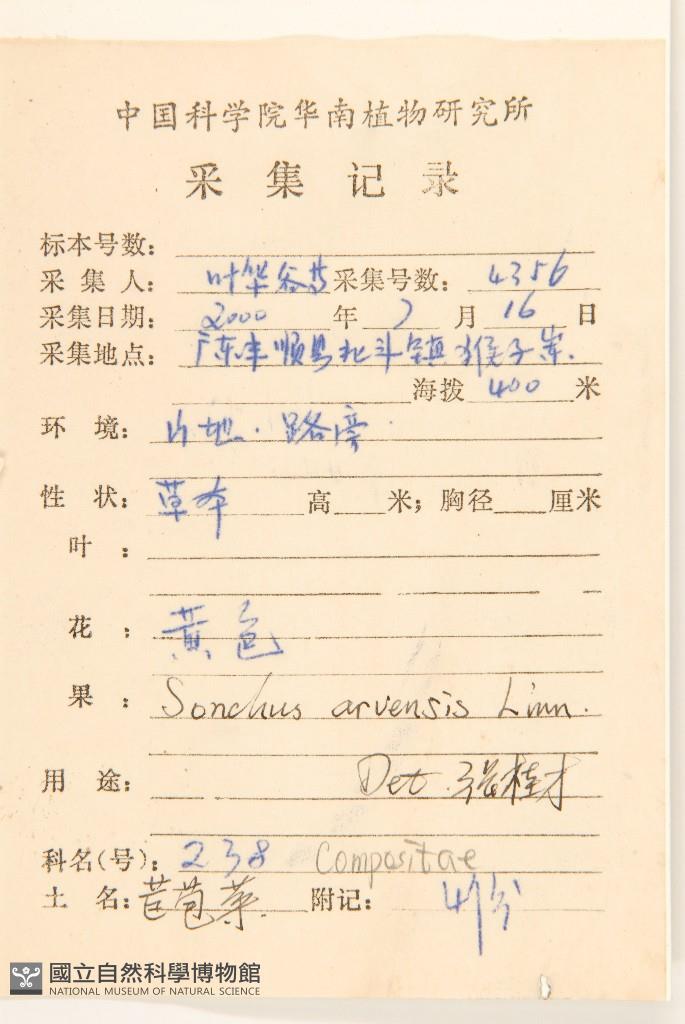 中国科学院华南植物研究所
采集记录
标本号数：
采集人： 叶华谷等 采集号数： 4356
采集日期： 2000 年 7 月 16 日
采集地点： 广东丰顺县北斗镇猴子岽.
海拨 400 米
环境： 片地．路旁．
性状： 草本 高 米；胸径 厘米
叶：
花： 黄色
果： Sonchus arvensis Linn.
用途： Det. 张桂才
科名(号)： 238 Compositae
土名： 苣苞菜 附记： 4份
國立自然科學博物館
NATIONAL MUSEUM OF NATURAL SCIENCE